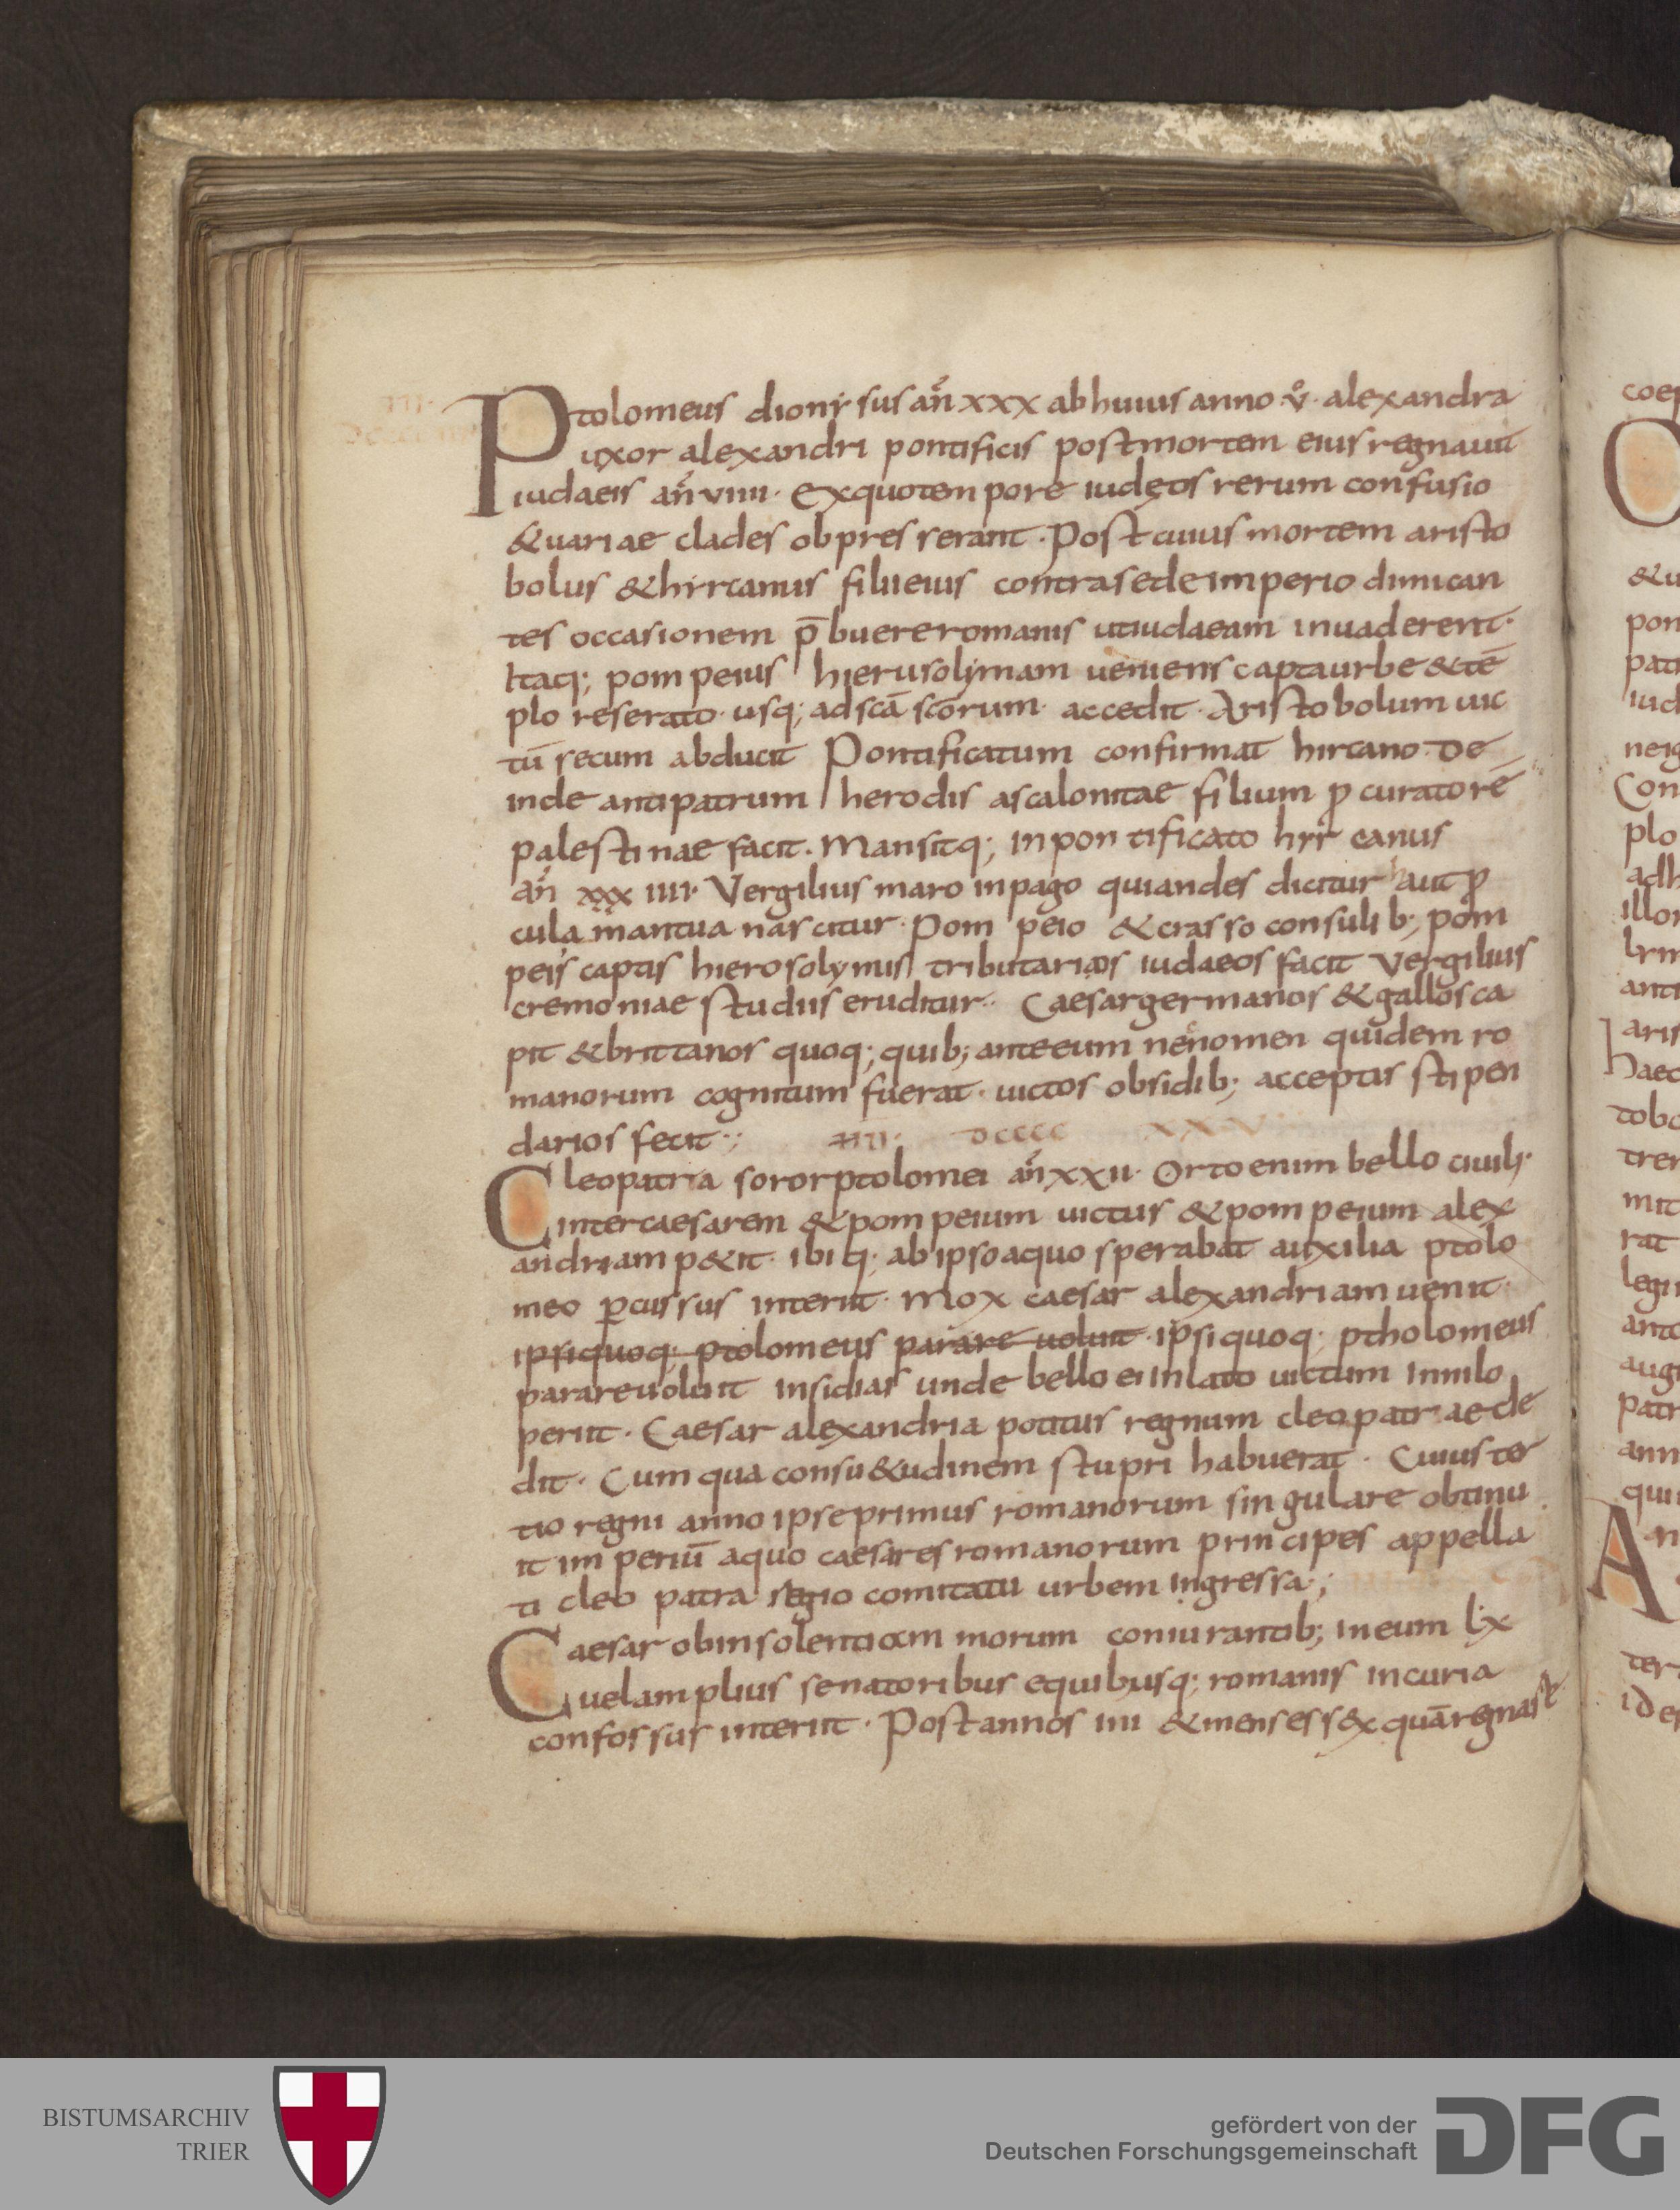 Ptolomeus dionisus an̄ xxx ab huius anno v° alexandra
uxor alexandri pontificis post mortem eius regnauit
iudaeis an̄ viiii · Ex quo tempore iudęos rerum confusio
& uariae clades obpresserant · Post cuius mortem aristo
bolus & hircanus filii eius contra se de imperio dimican
tes occasionem p̄buere romanis ut iudaeam inuaderent ·
Itaq; pompeius hierusolymam ueniens capta urbe & tē
plo reserato · usq; ad scā scorum · accedit · Aristobolum uic
tū secum abducit Pontificatum confirmat hircano · De
inde antipatrum herodis ascalonitae filium p curatorē
palestinae facit · Mansitq; in pontificato hyrcanus
an̄ xxx iiii · Vergilius maro in pago qui andes dicitur haut p
cula mantua nascitur · Pompeio & crasso consulib; pom
peis captis hierosolymis tributarios iudaeos facit Vergilius
cremoniae studiis eruditur · Caesar germanos & gallos ca
pit & brittanos quoq; quib; ante eum ne nomen quidem ro
manorum cognitum fuerat · uictos obsidib; acceptis stipen
darios fecit ·; iiii · Dcccc xxv
Cleopatria soror ptolomei an̄ xxii · Orto enim bello ciuili ·
inter caesarem & pompeium uictus & pompeium alex
andriam p&it · ibi q; ab ipso a quo sperabat auxilia ptolo
meo pcussus interiit · Mox caesar alexandriam uenit ·
ipsi quoq; ptolomeus parare uoluit · ipsi quoq; ptholomeus
parare uoluit insidias unde bello ei inlato uictum in nilo
periit · Caesar alexandria potitus regnum cleopatriae de
dit · Cum qua consu&udinem stupri habuerat · Cuius ter
tio regni anno ipse primus romanorum singulare obtinu
it imperiū a quo caesares romanorum principes appella
ti cleopatra regio comitatu urbem ingressa ·;
Caesar ob insolentiam morum coniurantib; in eum lx
uel amplius senatoribus equibusq; romanis in curia
confossus interiit · Post annos iiii & menses s&x quā regnas&
BISTUMSARCHIV
TRIER
gefördert von der
Deutschen Forschungsgemeinschaft
DFG